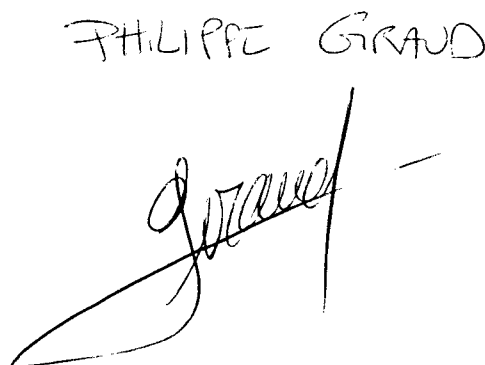 PHILIPPE GIRAUD
Giraud